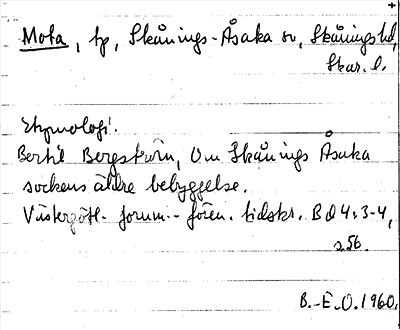 Mota, tp, Skånings-Åsaka sn, Skånings hd,
Skar. l.
Etymologi.
Bertil Bergström, Om Skånings Åsaka
sockens äldre bebyggelse.
Västergötl. fornm.- fören. tidskr. Bd 4: 3-4,
s. 56.
B.-E.O. 1960.